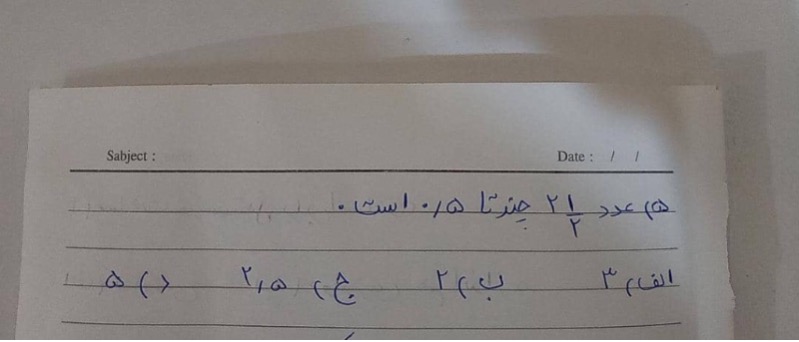 Sabject : Date : / /
۵) عدد ۲ ۱/۲ چندتا ۰/۵ است.
الف) ۳ ب) ۲ ج) ۲/۵ د) ۵